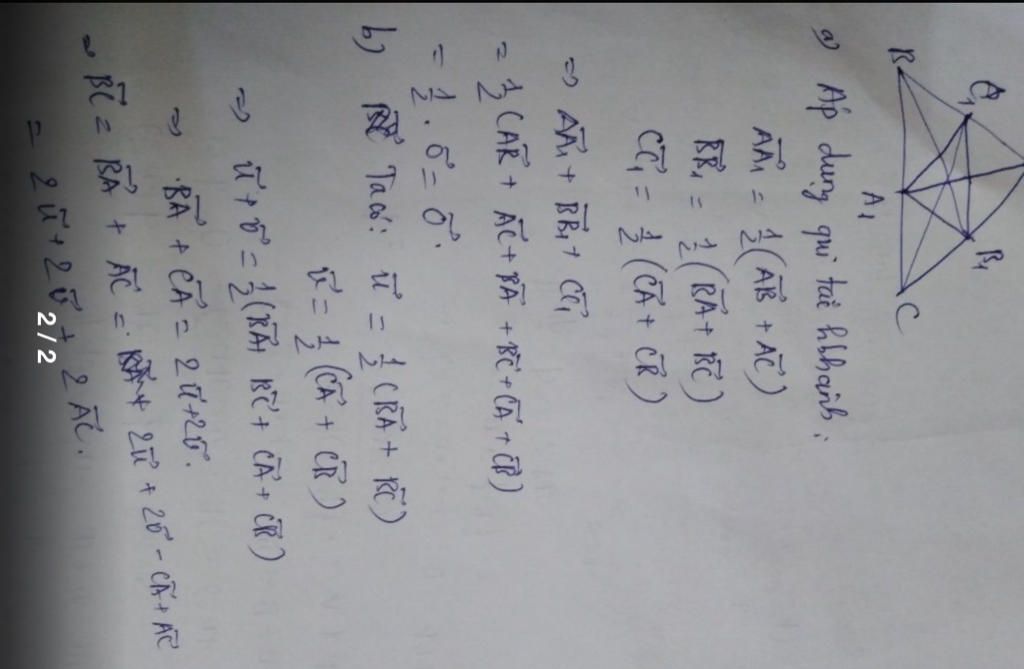 B
C₁
A₁
B₁
C
a) Áp dụng qui tắc hbhành:
AA₁⃗ = 1/2(AB⃗ + AC⃗)
BB₁⃗ = 1/2(BA⃗ + BC⃗)
CC₁⃗ = 1/2(CA⃗ + CB⃗)
⇒ AA₁⃗ + BB₁⃗ + CC₁⃗
= 1/2(AB⃗ + AC⃗ + BA⃗ + BC⃗ + CA⃗ + CB⃗)
= 1/2 . 0⃗ = 0⃗.
b) Ta có: u⃗ = 1/2(BA⃗ + BC⃗)
v⃗ = 1/2(CA⃗ + CB⃗)
⇒ u⃗ + v⃗ = 1/2(BA⃗ + BC⃗ + CA⃗ + CB⃗)
⇒ BA⃗ + CA⃗ = 2u⃗ + 2v⃗.
⇒ BC⃗ = BA⃗ + AC⃗ = 2u⃗ + 2v⃗ - CA⃗ + AC⃗
= 2u⃗ + 2v⃗ + 2AC⃗.
2/2